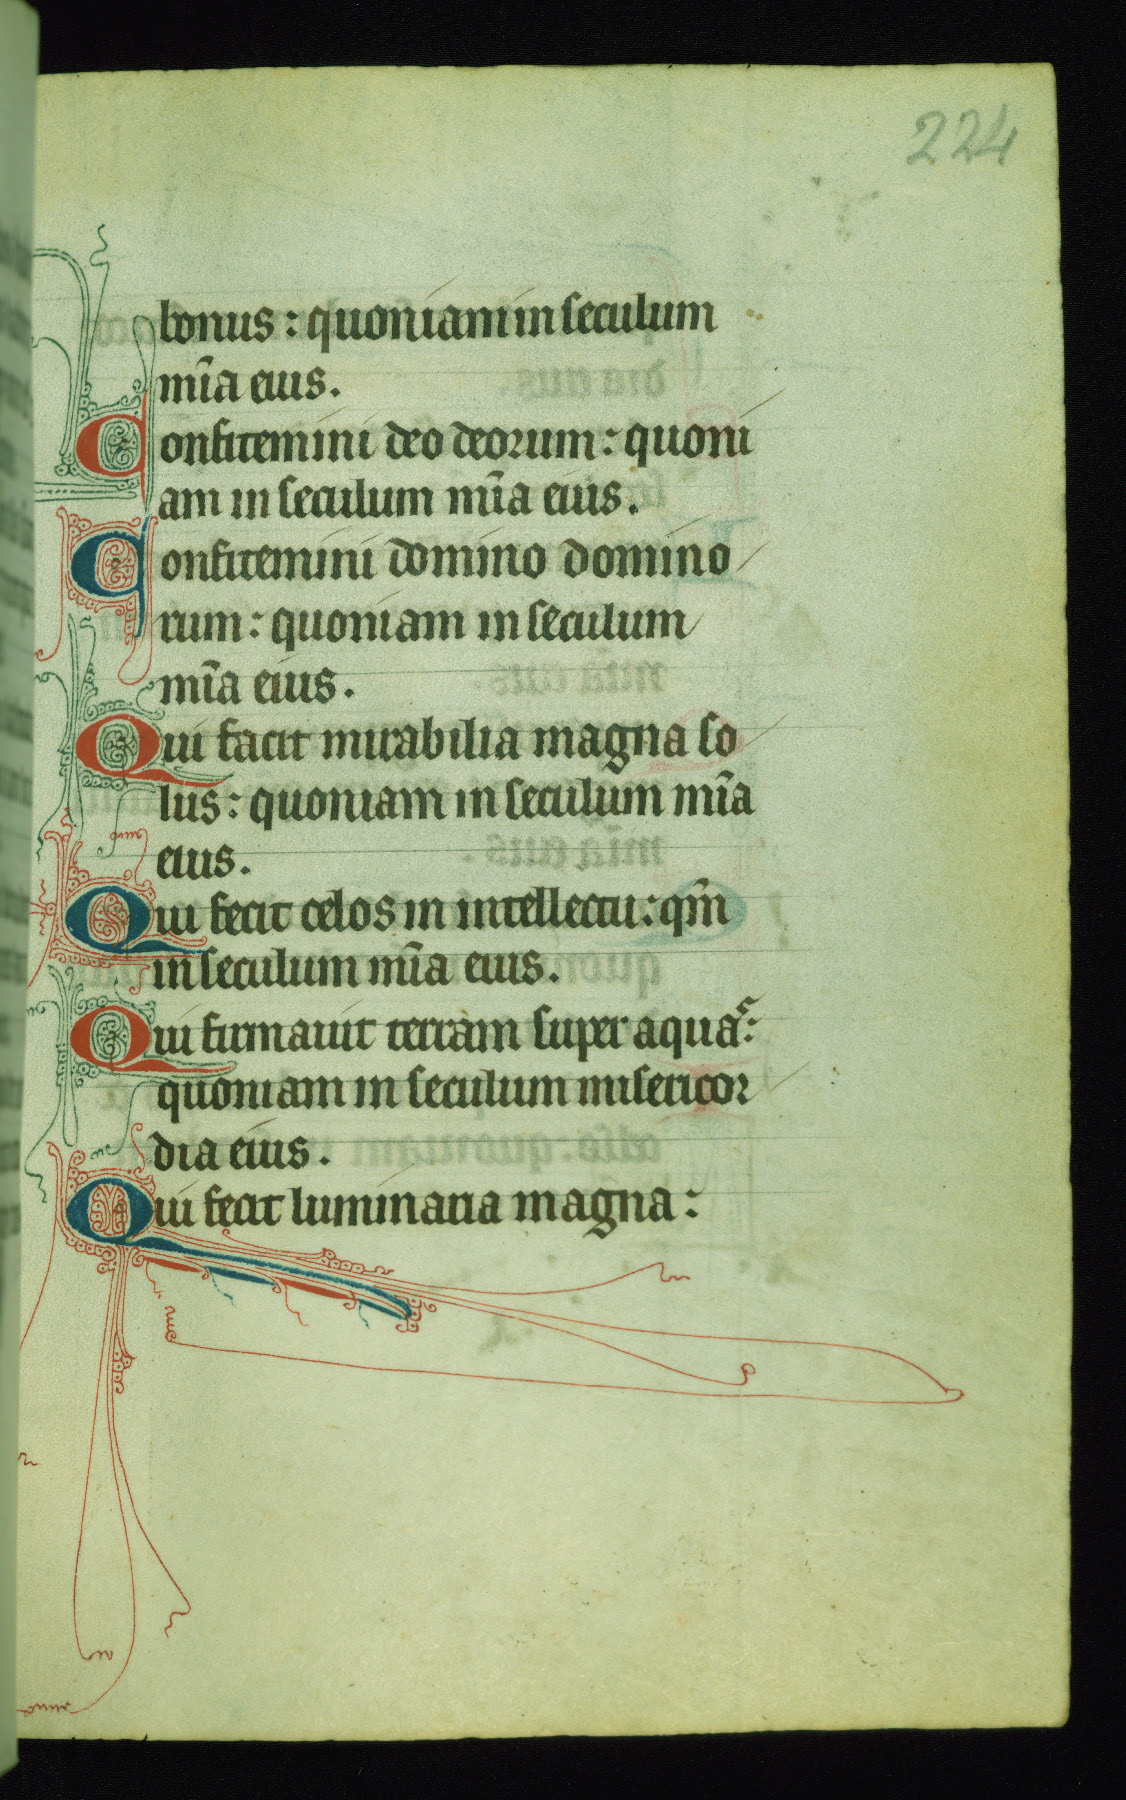 224
bonus : quoniam in seculum
mīa eius .
Confitemini deo deorum : quoni
am in seculum mīa eius .
Confitemini domino domino
rum : quoniam in seculum
mīa eius .
Qui facit mirabilia magna so
lus : quoniam in seculum mīa
eius .
Qui fecit celos in intellectu : qm̄
in seculum mīa eius .
Qui firmauit terram super aquas :
quoniam in seculum misericor
dia eius .
Qui fecit luminaria magna :